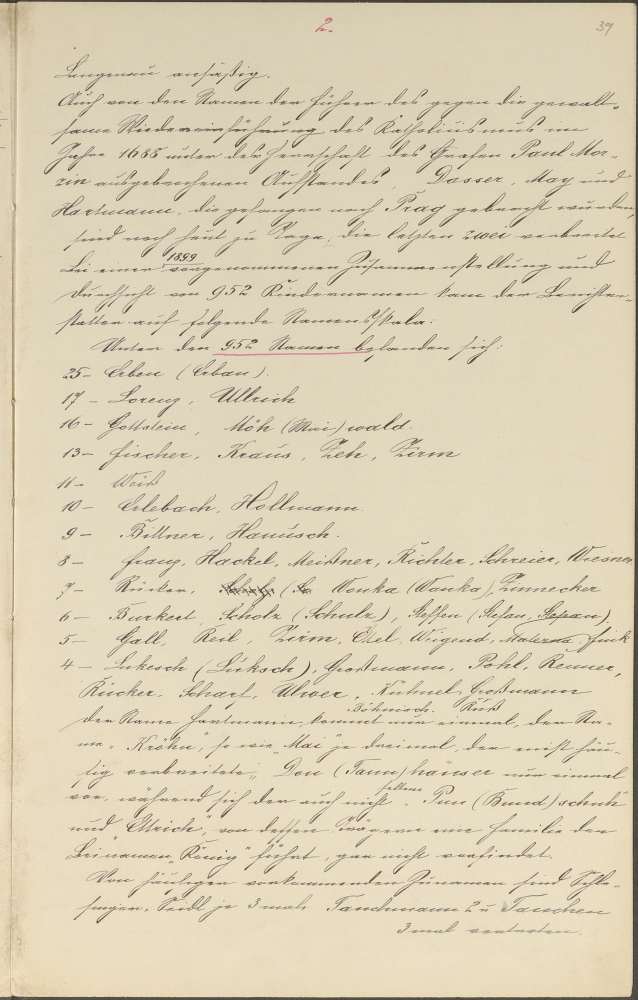 2.
39
Langenau ansäßig.
Auch von den Namen der Führer des gegen die gewalt-
same Wiedereinführung des Katholicismus im
Jahre 1688 unter der Herrschaft des Grafen Paul Mor-
zin ausgebrochenen Aufstandes, Dasser, May und
Hartmann, die gefangen nach Prag gebracht wurden,
sind noch heut zu Tage, die letzten zwei verbreitet
Bei einer 1899 vorgenommenen Zusammenstellung und
Durchsicht von 952 Kindernamen kam der Berichter-
statter auf folgende Namensskala:
Unter den 952 Namen befanden sich:
25 - Erben (Erban).
17 - Lorenz, Ullrich
16 - Gottstein, Möh (Mai) wald.
13 - Fischer, Kraus, Zeh, Zirm
11 - Weiß
10 - Erlebach, Hollmann.
9 - Bittner, Hanusch.
8 - Franz, Hackel, Meißner, Richter, Schreier, Wiesner
7 - Wonka (Wonka), Zinnecker
6 - Burkert, Scholz (Schulz), Steffen (Stefan,
5 - Gall, Reil, Zirm, Etel, Wiegend, Materna, Fink
4 - Lukesch (Luksch), Großmann, Pohl, Renner,
Rücker, Scharf, Kuhnel, Großmann
Böhnisch. Ruß
Der Name Hartmann, kommt nur einmal, der Na-
me „Kröhn", so wie „Mai" je dreimal, der einst häu-
fig verbreitete „Don (Tann) häuser nur einmal
vor, während sich der auch nicht seltene Pun (Bund) schuh
und „Ettrich", von dessen Trägern eine Familie den
Beinamen „König" führt, gar nicht vorfindet.
Von häufiger vorkommenden Zunamen sind Schle-
singer, Seidl je 3 mal, Taschmann 2 u Tauchen
3 mal vertreten.